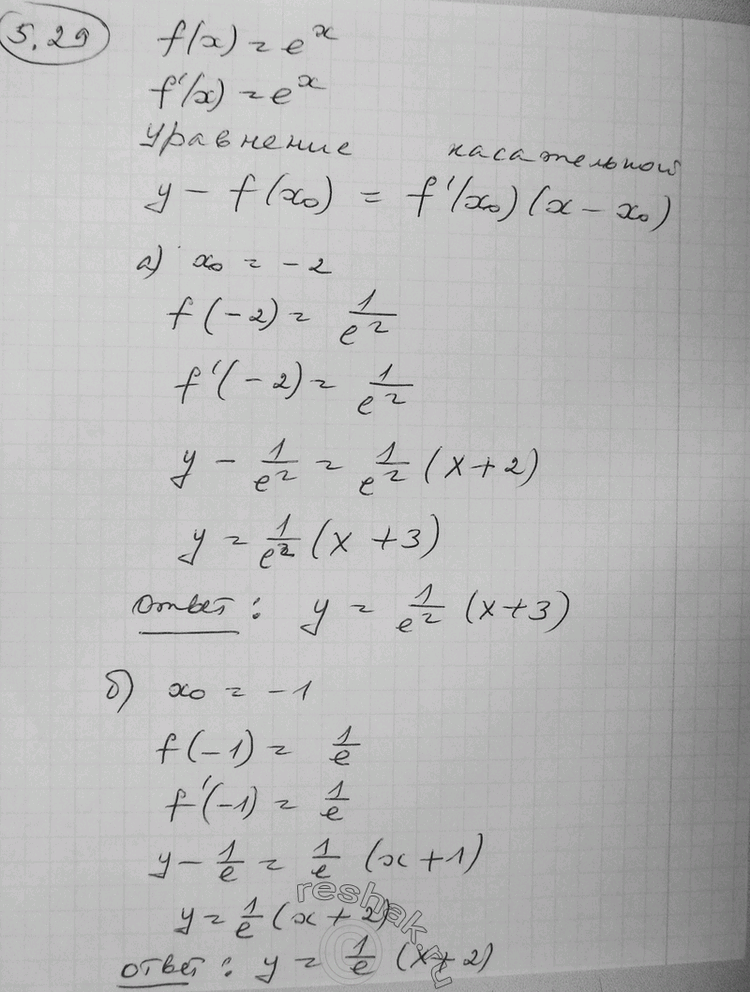 5.29
f(x) = e^x
f'(x) = e^x
Уравнение касательной
y - f(x₀) = f'(x₀)(x - x₀)
а) x₀ = -2
f(-2) = 1/e²
f'(-2) = 1/e²
y - 1/e² = 1/e² (x+2)
y = 1/e² (x+3)
Ответ: y = 1/e² (x+3)
б) x₀ = -1
f(-1) = 1/e
f'(-1) = 1/e
y - 1/e = 1/e (x+1)
y = 1/e (x+2)
ответ: y = 1/e (x+2)
reshak.ru